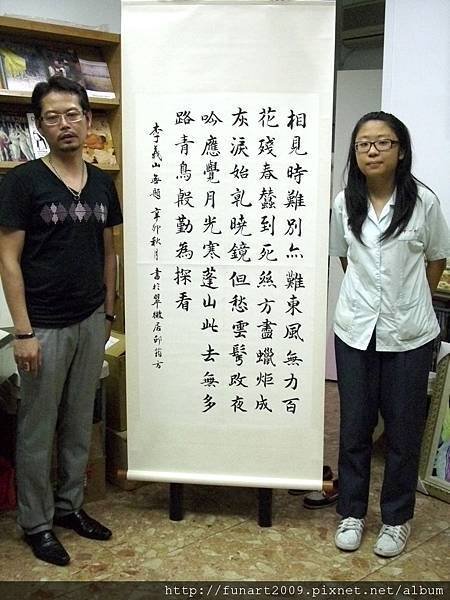 相見時難別亦難東風無力百
花殘春蠶到死絲方盡蠟炬成
灰淚始乾曉鏡但愁雲鬢改夜
吟應覺月光寒蓬山此去無多
路青鳥殷勤為探看
李義山無題 辛卯秋月 書於翠微居
http://funart2009.pixnet.net/album